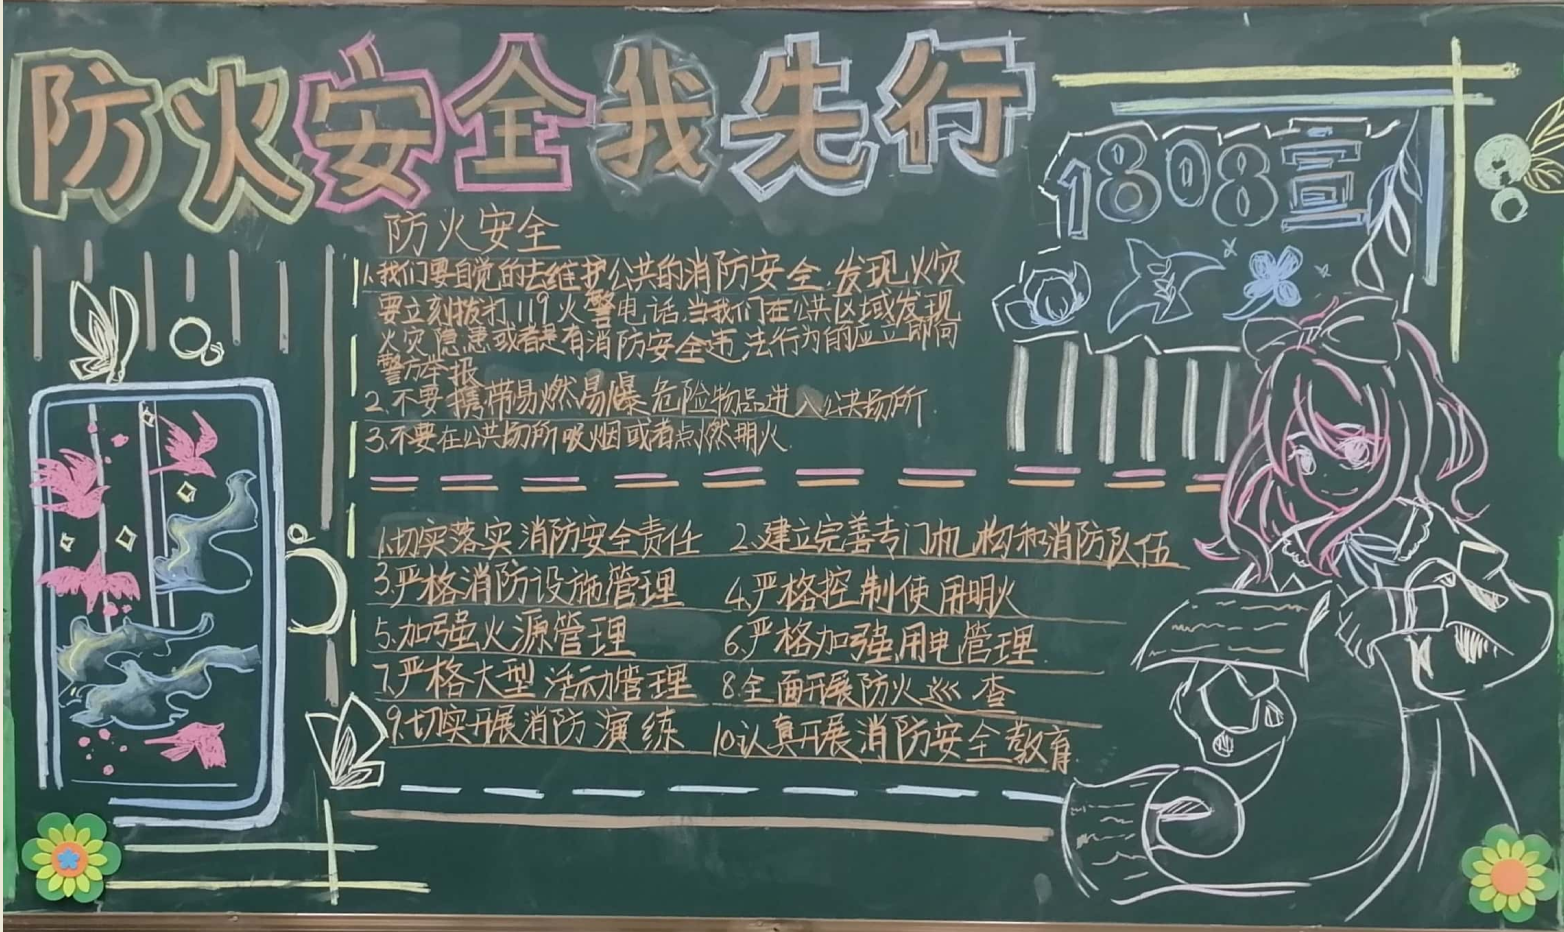 防火安全我先行
1808宣
防火安全
1.我们要自觉的去维护公共的消防安全.发现火灾
要立刻拨打119火警电话当我们在公共区域发现
火灾隐患或者是有消防安全违法行为的应立即向
警方举报
2.不要携带易燃易爆危险物品进入公共场所.
3.不要在公共场所吸烟或者点燃明火.
1.切实落实消防安全责任 2.建立完善专门机构和消防队伍
3.严格消防设施管理 4.严格控制使用明火
5.加强火源管理 6.严格加强用电管理.
7.严格大型活动管理 8.全面开展防火巡查
9.切实开展消防演练 10.认真开展消防安全教育